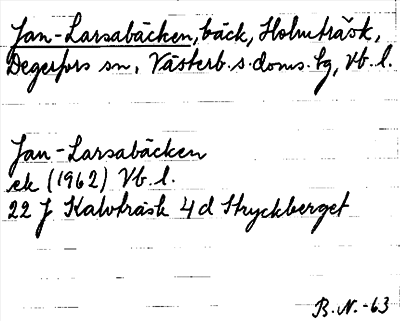 Jan-Larsabäcken, bäck, Holmträsk,
Degerfors sn, Västerb. s. doms. tg, Vb. l.
Jan-Larsabäcken
ek (1962) Vb. l.
22 J Kalvträsk 4 d Stryckberget
B. N. -63